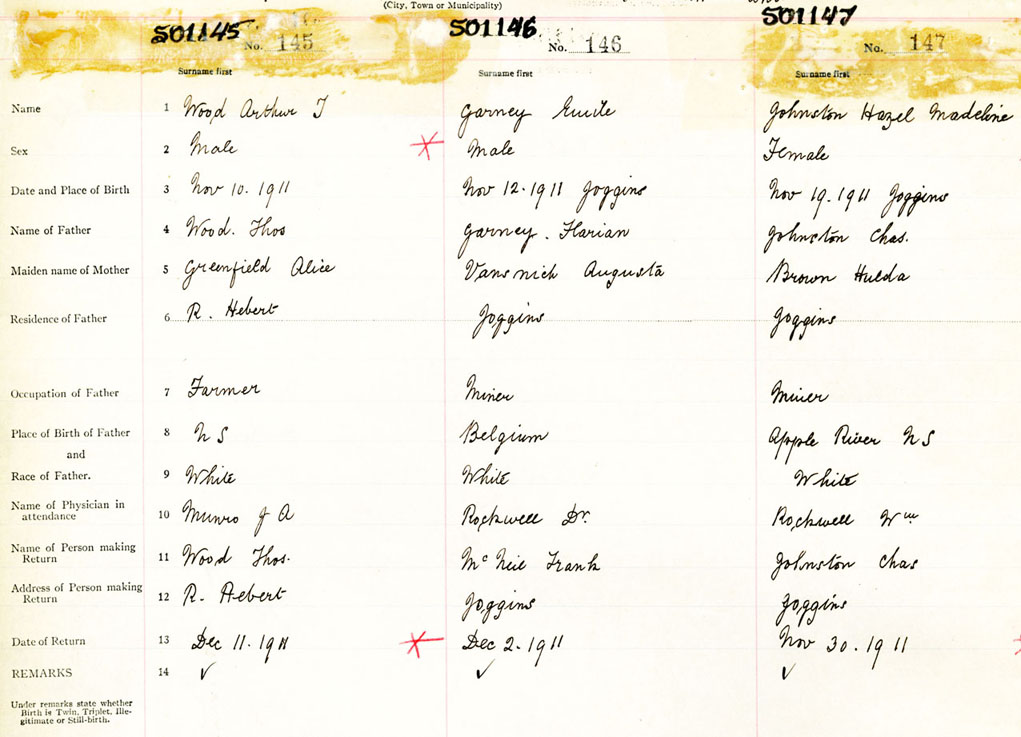 (City, Town or Municipality)
S01145 S01146 S01147
No. 145 No. 146 No. 147
Surname first Surname first Surname first
Name 1 Wood Arthur J Garney Johnston Hazel Madeline
Sex 2 Male Male Female
Date and Place of Birth 3 Nov 10. 1911 Nov 12. 1911 Joggins Nov 19. 1911 Joggins
Name of Father 4 Wood. Thos Garney. Florian Johnston Chas.
Maiden name of Mother 5 Greenfield Alice Augusta Brown Hulda
Residence of Father 6 R. Hebert Joggins Joggins
Occupation of Father 7 Farmer Miner Miner
Place of Birth of Father 8 N S Belgium Apple River N S
and
Race of Father. 9 White White White
Name of Physician in
attendance 10 Munro J A Rockwell Dr. Rockwell Wm
Name of Person making
Return 11 Wood Thos. McNeil Frank Johnston Chas
Address of Person making
Return 12 R. Hebert Joggins Joggins
Date of Return 13 Dec 11. 1911 Dec 2. 1911 Nov 30. 1911
REMARKS 14 ✓ ✓ ✓
Under remarks state whether
Birth is Twin, Triplet, Ille-
gitimate or Still-birth.